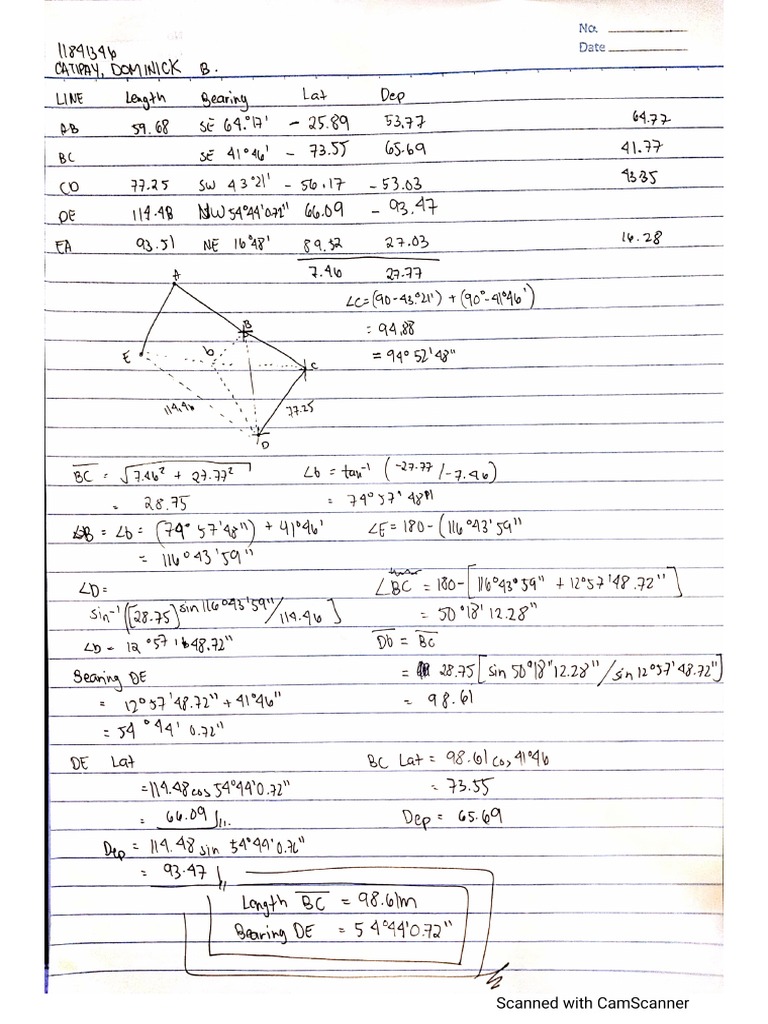 No.
Date
11841346
CATIPAY, DOMINICK B.
LINE Length Bearing Lat Dep
AB 59.68 SE 64.°17' - 25.89 53.77 64.77
BC SE 41°46' - 73.55 65.69 41.77
CD 77.25 SW 43°21' - 56.17 - 53.03 43.35
DE 114.48 NW 54°44'0.72" 66.09 - 93.47
EA 93.51 NE 16°48' 89.52 27.03 16.28
7.46 27.77
∠C=(90-43.°21') + (90°-41°46')
= 94.88
= 94° 52'48"
A
B
b
E
C
114.48
77.25
D
BC = √7.46² + 27.77² ∠b = tan⁻¹ (-27.77/-7.46)
= 28.75 = 74° 57' 48"
∠B = ∠b = (74° 57'48") + 41°46' ∠E = 180 - (116°43'59"
= 116°43'59"
∠D= ∠BC = 180-[116°43°59" + 12°57'48.72"]
sin⁻¹([28.75] sin 116°43'59"/114.46] = 50°18' 12.28"
∠D = 12°57'48.72" Db = BC
Bearing DE = 28.75 [sin 50°18"12.28"/sin 12°57'48.72"]
= 12°57'48.72" + 41°46" = 98.61
= 54°44' 0.72"
DE Lat BC Lat = 98.61 cos 41°46
=114.48 cos 54°44'0.72" = 73.55
= 66.09 Dep = 65.69
Dep = 114.48 sin 54°44'0.76"
= 93.47
Length BC = 98.61m
Bearing DE = 54°44'0.72"
Scanned with CamScanner